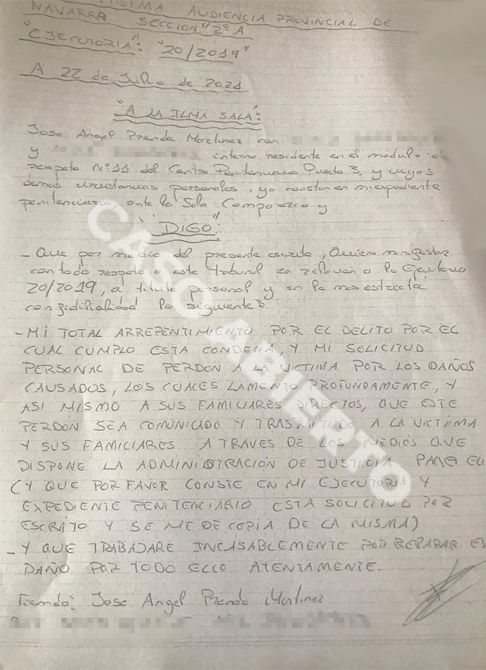 ILUSTRISIMA AUDIENCIA PROVINCIAL DE
NAVARRA SECCION "2ªA
"EJECUTORIA": "20/2019"
A 22 de Julio de 2021
"A LA ILMA SALA":
Jose Angel Prenda Martinez con
y interno residente en el modulo de
respeto Nº11 del Centro Penitenciario Puerto 3, y cuyas
demas circustancias personales, ya constan en mi expediente
penitenciario ante la Sala Comparezco y
"DIGO":
- Que por medio del presente escrito, Quiero manifestar
con todo respeto a este tribunal en relacion a la Ejecutoria
20/2019, a titulo personal y en la mas estricta
confidialidad lo siguiente:
- MI TOTAL ARREPENTIMIENTO POR EL DELITO POR EL
CUAL CUMPLO ESTA CONDENA, Y MI SOLICITUD
PERSONAL DE PERDON A LA VICTIMA POR LOS DAÑOS
CAUSADOS, LOS CUALES LAMENTO PROFUNDAMENTE, Y
ASI MISMO A SUS FAMILIARES DIRECTOS, QUE ESTE
PERDON SEA COMUNICADO Y TRASMITIDO A LA VICTIMA
Y SUS FAMILIARES A TRAVES DE LOS MEDIOS QUE
DISPONE LA ADMINISTRACION DE JUSTICIA PARA ELLO
(Y QUE POR FAVOR CONSTE EN MI EJECUTORIA Y
EXPEDIENTE PENITENCIARIO ESTA SOLICITUD POR
ESCRITO Y SE ME DE COPIA DE LA MISMA)
- Y QUE TRABAJARE INCASABLEMENTE POR REPARAR ESE
DAÑO POR TODO ELLO ATENTAMENTE.
Firmado: Jose Angel Prenda Martinez
CASO ABIERTO